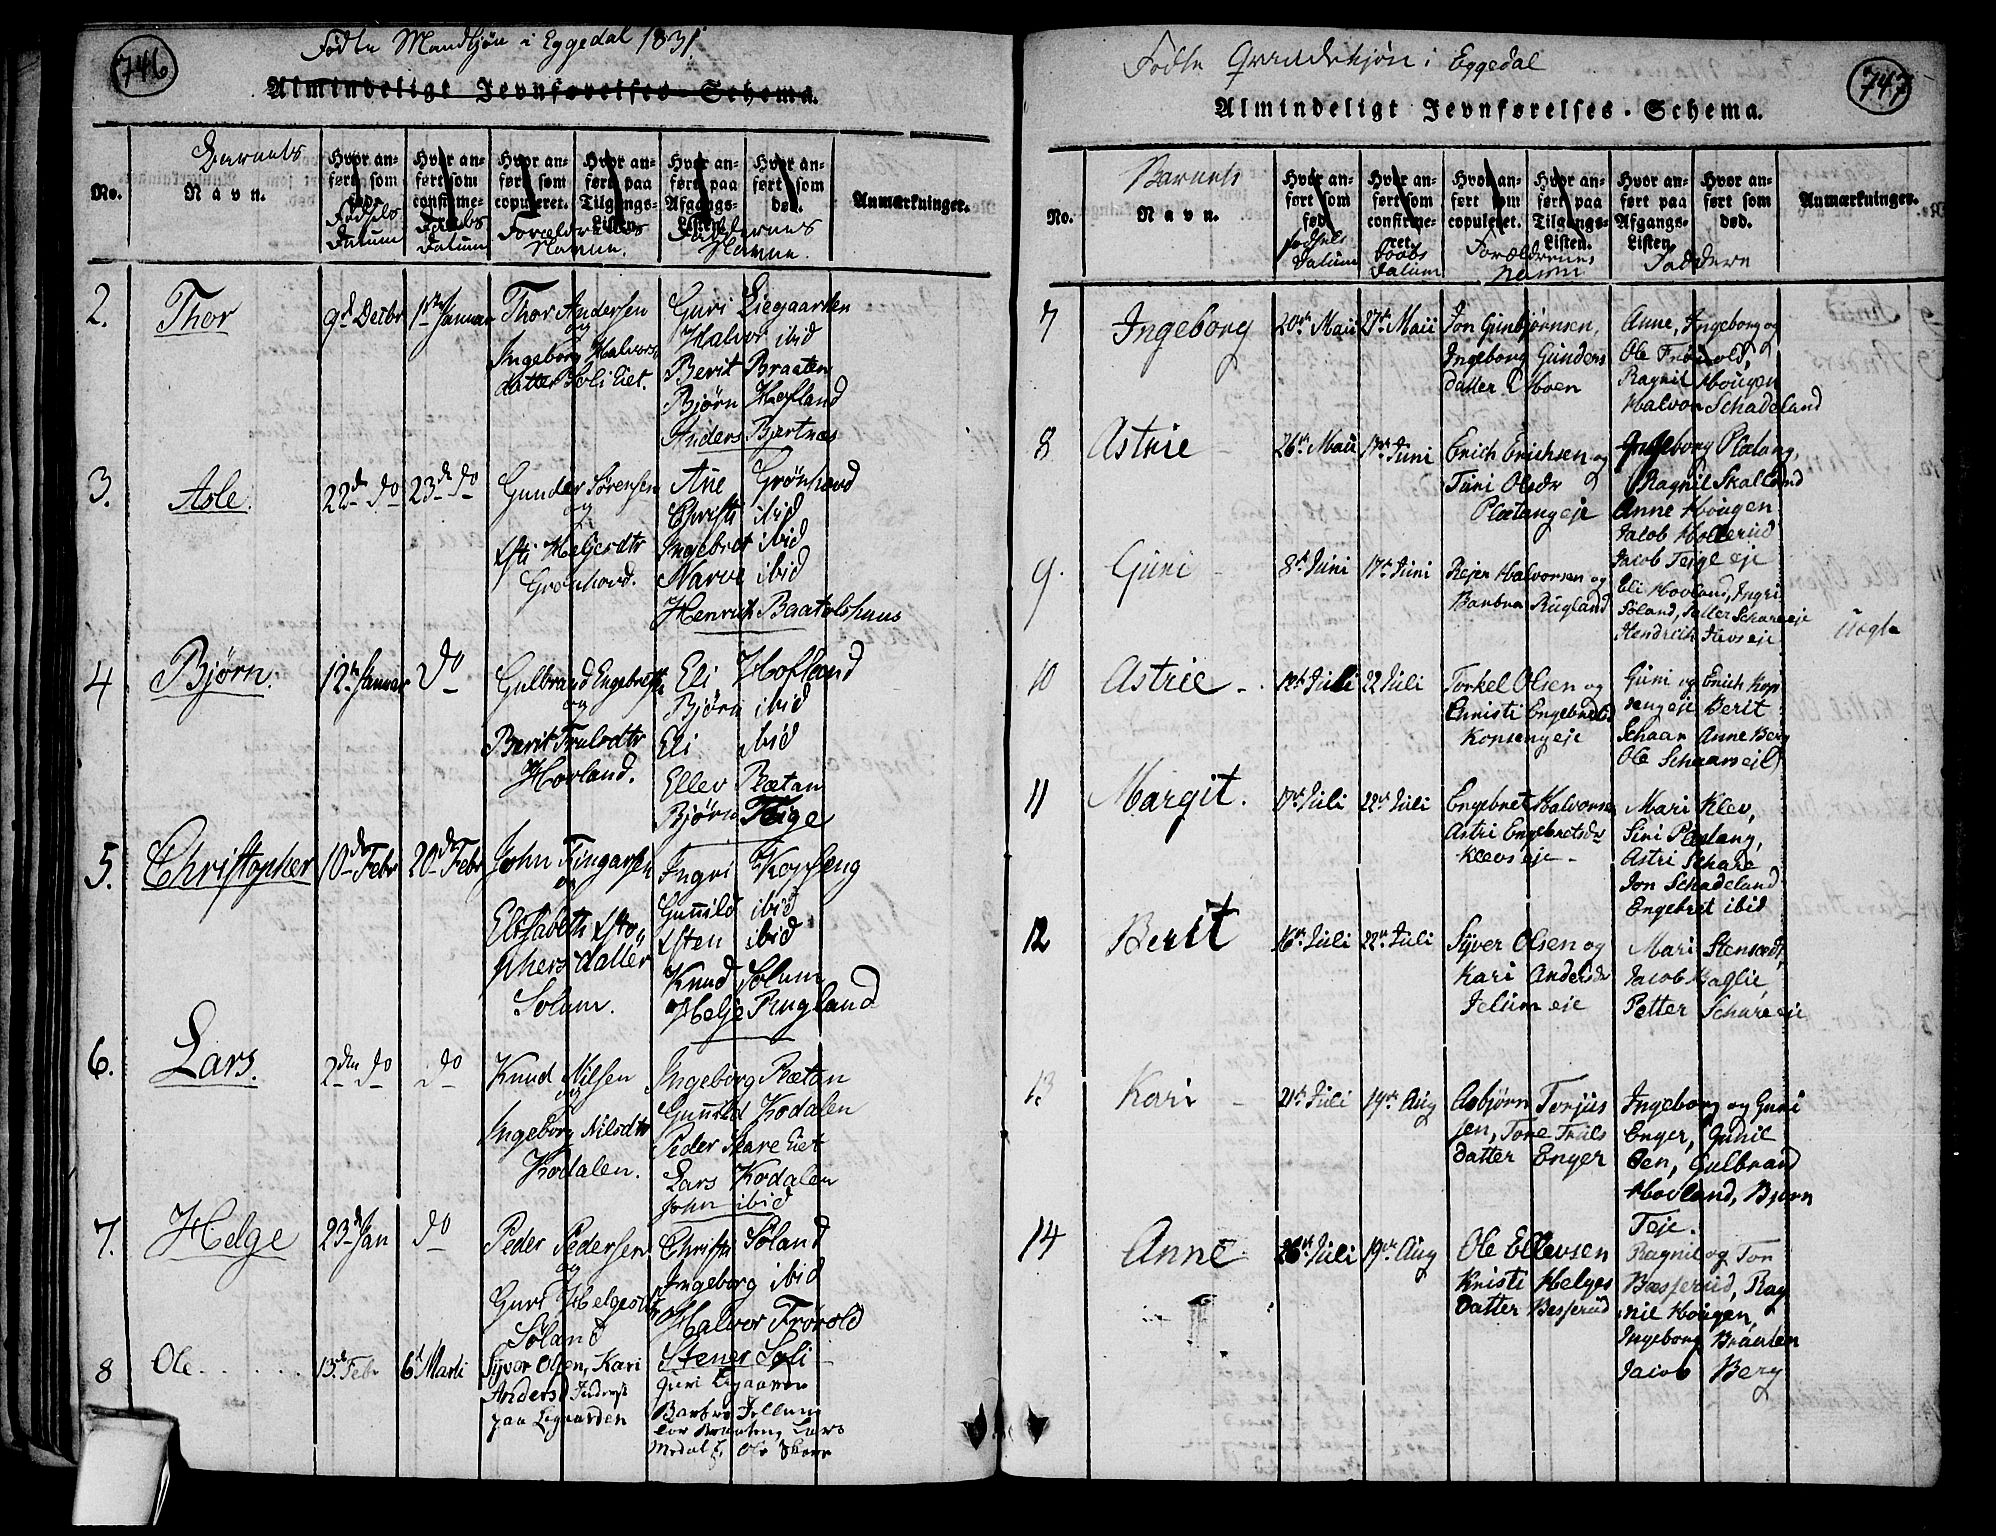 746
Fødte Mandkjøn i Eggedal 1831.
Almindeligt Jevnførelses-Schema.
No.
Barnets
Navn.
Hvor anført som
Fødsels Datum
Hvor anført som confirmeret.
Daabs Datum
Hvor anført som copuleret.
Hvor anført paa Tilgangs-Listen.
Forældrenes Navne.
Hvor anført paa Afgangs-Listen
Hvor anført som død.
Faddernes Navne.
Anmærkninger.
2.
Thor
9d Decbr
1ste Januar
Thor Andersen
og
Ingeborg Halvors
datter Soli Eiet.
Guri Liegaarden
Halvor ibid
Berit Braaten
Bjørn Hofland
Anders Bjertnæs
3.
Asle.
22d do
23d do
Gunder Sørensen
og
Heljesdtr
Grønhovd.
Ane Grønhovd
Christi ibid
Ingebret ibid
Narve ibid
Henrich Baatolshuus
4
Bjørn.
12te Januar
do
Gulbrand Engebrets
og
Berit Trulsdtr
Hovland.
Eli Hofland
Bjørn ibid
Eli ibid
Ellev Plætan
Bjørn Teige
5.
Christopher
10de Febr
20de Febr
John Fingarsen
og
Elisabeth
phers datter
Solum.
Ingri Kopseng
Gunild ibid
ibid
Knud Solum
Helje Rugland
6.
Lars.
2den do
do
Knud Nilsen
og
Ingeborg Nilsdtr
Kodalen.
Ingeborg Plætan
Gunild Kodalen
Peder Skare Eiet
Lars Kodalen
John ibid
7.
Helge
23d Jan
do
Peder Pedersen
og
Guri Helgesdtr
Søland
Christi Søland
Ingeborg ibid
Halvor Frøvold
Stener Soli
8
Ole
13de Febr
6t Marti
Syver Olsen, Kari
Andersd
paa Ligaarden
Guri Ligaarden
Barbro
Lars
Medal Ole Skare
747
Fødte Qvindekjøn i Eggedal
Almindeligt Jevnførelses-Schema.
No.
Barnets
Navn.
Hvor anført som fød.
Fødsels Datum
Hvor anført som confirmeret.
Daabs Datum
Hvor anført som copuleret.
Hvor anført paa Tilgangs-Listen.
Forældrenes Navne
Hvor anført paa Afgangs-Listen
Hvor anført som død.
Faddere
Anmærkninger.
7
Ingeborg
20de Maii
27de Maii
Jon Gunbjørnsen,
Ingeborg Gunders
datter Moen
Anne, Ingeborg og
Ole Frøvold,
Ragnil Hougen
Halvor Schadeland
8
Astrie
26de Maii
17de Juni
Erich Erichsen og
Turi Olsdr
Plætangeje
Ingeborg Plætang,
Ragnil Skalland
Anne Hougen
Jacob Hollerud
Jacob Teigl eje
9.
Guri
8de Juni
17de Juni
Rejer Halvorsen og
Barbra Rugland
Eli Hovland, Ingri
Søland, Peller Schareeje
Hendrich
Uægte
10
Astrie
12te Juli
22 Juli
Torkel Olsen og
Christi Engebretsd
Kopsengeje
Guri og Erich Kop
sengeje Berit
Schaar Anne Berg
Ole Schaarseje
11
Margit.
17de Juli
22de Juli
Engebret Halvorsn
Astri Engebretsdr
Klevseje
Mari Klev,
Siri Plætang,
Astri Schare
Jon Schadeland
Engebret ibid
12
Berit
16de Juli
22de Juli
Syver Olsen og
Kari Andersdr
Jelum eje
Mari
Jacob Haglie,
Petter Schare eje
13.
Kari
21de Juli
19de Aug
Asbjørn Torjus
sen, Tore Truls
datter Enger
Ingeborg og Guri
Enger, Gunil
Oen, Gulbrand
Hovland, Bjørn
Teje.
14
Anne
26de Juli
19de Aug
Ole Ellevsen
Kristi Helges
datter Besserud
Ragnil og Tor
Bæsserud, Rag
nil Hougen,
Ingeborg Braaten
Jacob Berg